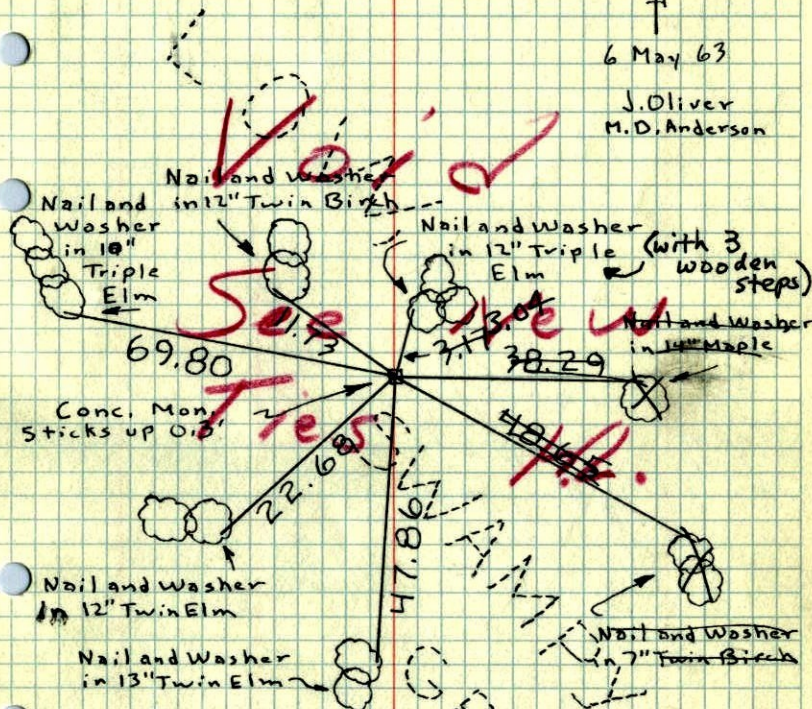 6 May 63
J. Oliver
M.D. Anderson
Void
Nail and Washer
in 12" Twin Birch
Nail and
Washer
in 10"
Triple
Elm
Nail and Washer
in 12" Triple
Elm
(with 3
wooden
steps)
See New
Nail and Washer
in 14" Maple
69.80
11.73
3.11
3.04
38.29
Conc. Mon.
Sticks up 0.3'
Ties
22.68
47.86
Nail and Washer
in 12" Twin Elm
Nail and Washer
in 13" Twin Elm
Nail and Washer
in 7" Twin Birch